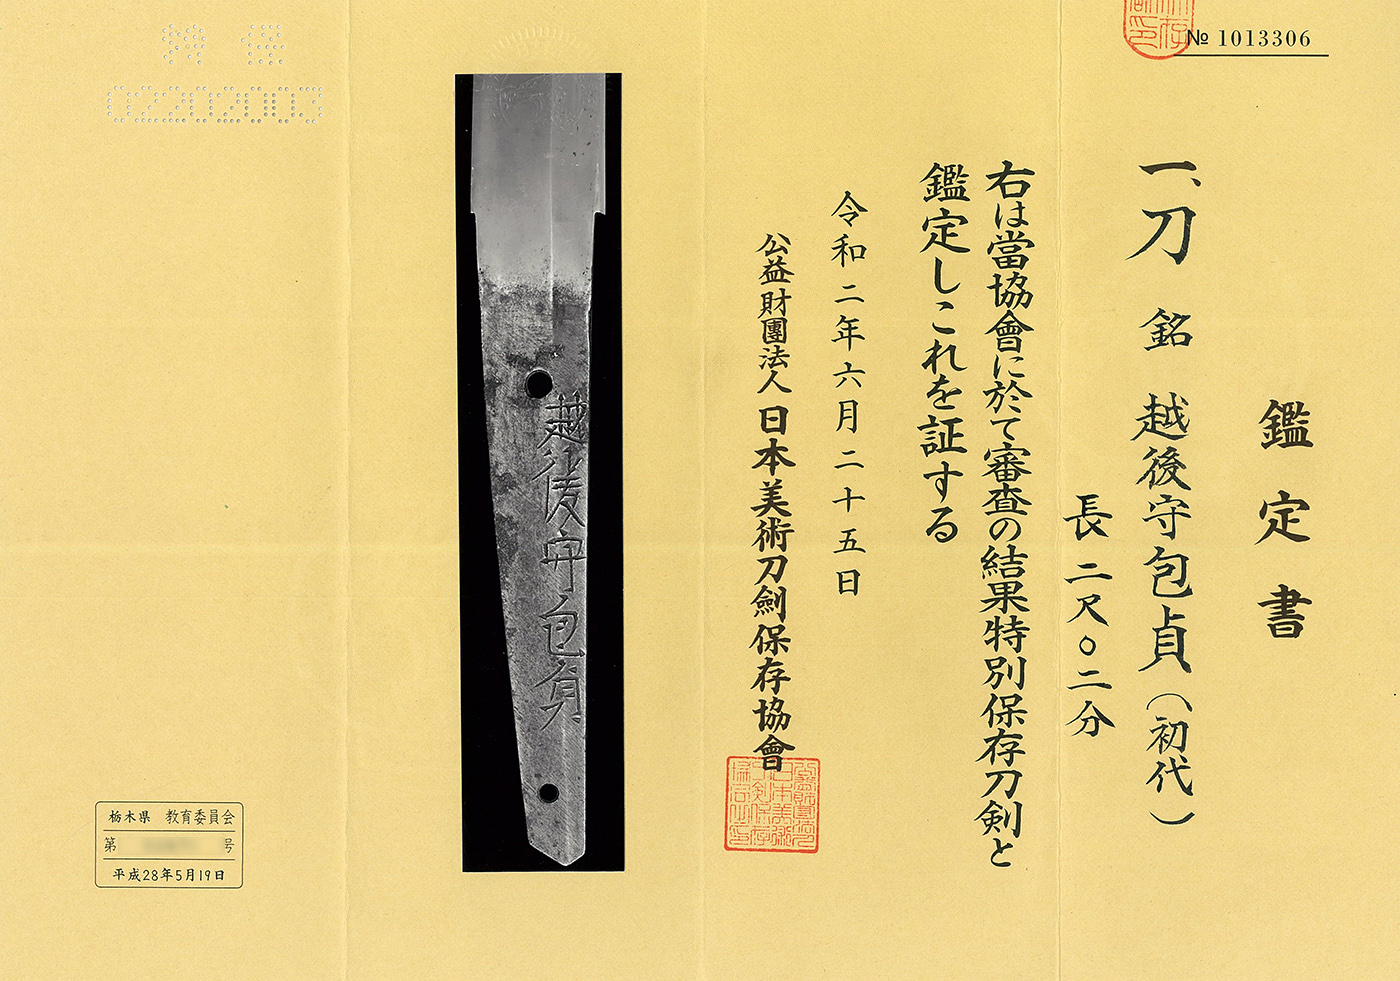 № 1013306
鑑定書
一、刀 銘 越後守包貞(初代)
長 二尺0二分
右は當協會に於て審査の結果特別保存刀剣と
鑑定しこれを証する
令和二年六月二十五日
公益財團法人 日本美術刀劍保存協會
越後守包貞
特保
02202003
栃木県 教育委員会
第 号
平成28年5月19日